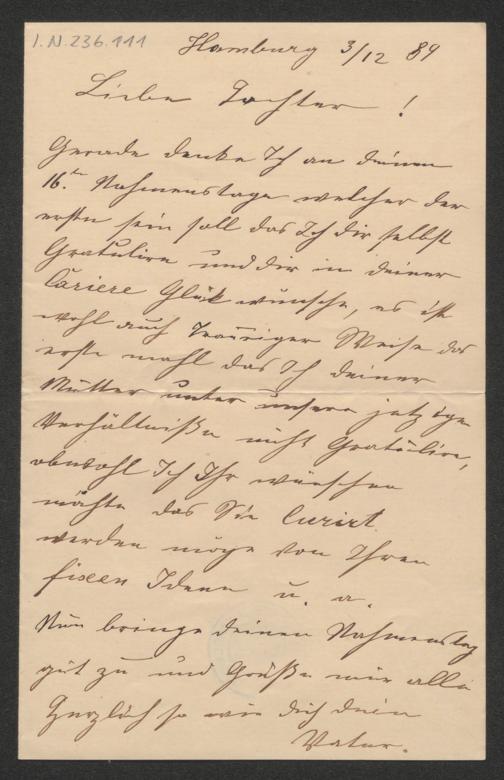 I.N.236.111
Hamburg 3/12 89
Liebe Tochter!
Gerade denke Ich an deinen
16.ten Nahmenstage welcher der
erste sein soll das Ich dir selbst
Gratulire und dir in deiner
Cariere Glük wünsche, es ist
wohl auch Trauriger Weise das
erste mahl das Ich deiner
Mutter unter unsern jetzigen
Verhältniße nicht Gratulire,
obwohl Ich Ihr wünschen
möchte das Sie Curirt
werden möge von Ihren
fixen Ideen u. a.
Nun bringe deinen Nahmenstag
gut zu und Grüße mir alle
Herzlich so wie dich dein
Vater.